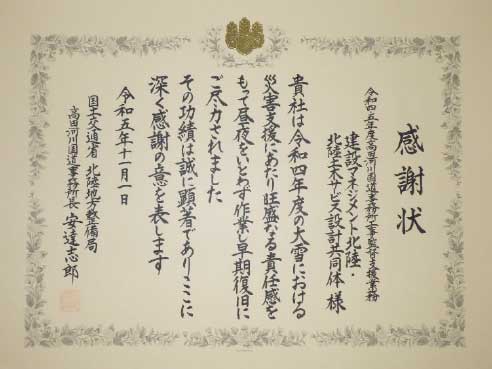 感謝状
令和四・五年度高田河川国道事務所工事監督支援業務
建設マネジメント北陸・
北陸土木サービス設計共同体 様
貴社は令和四年度の大雪における
災害支援にあたり旺盛なる責任感を
もって昼夜をいとわず作業し早期復旧に
ご尽力されました
その功績は誠に顕著でありここに
深く感謝の意を表します
令和五年十一月一日
国土交通省 北陸地方整備局
高田河川国道事務所長 安達志郎